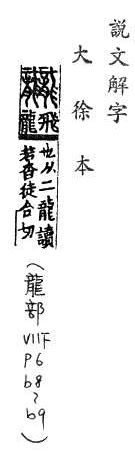 說文解字
大徐本
龖飛龍
也从二龍讀
若沓徒合切
(龍部
VII下
P6
b8~
b9)